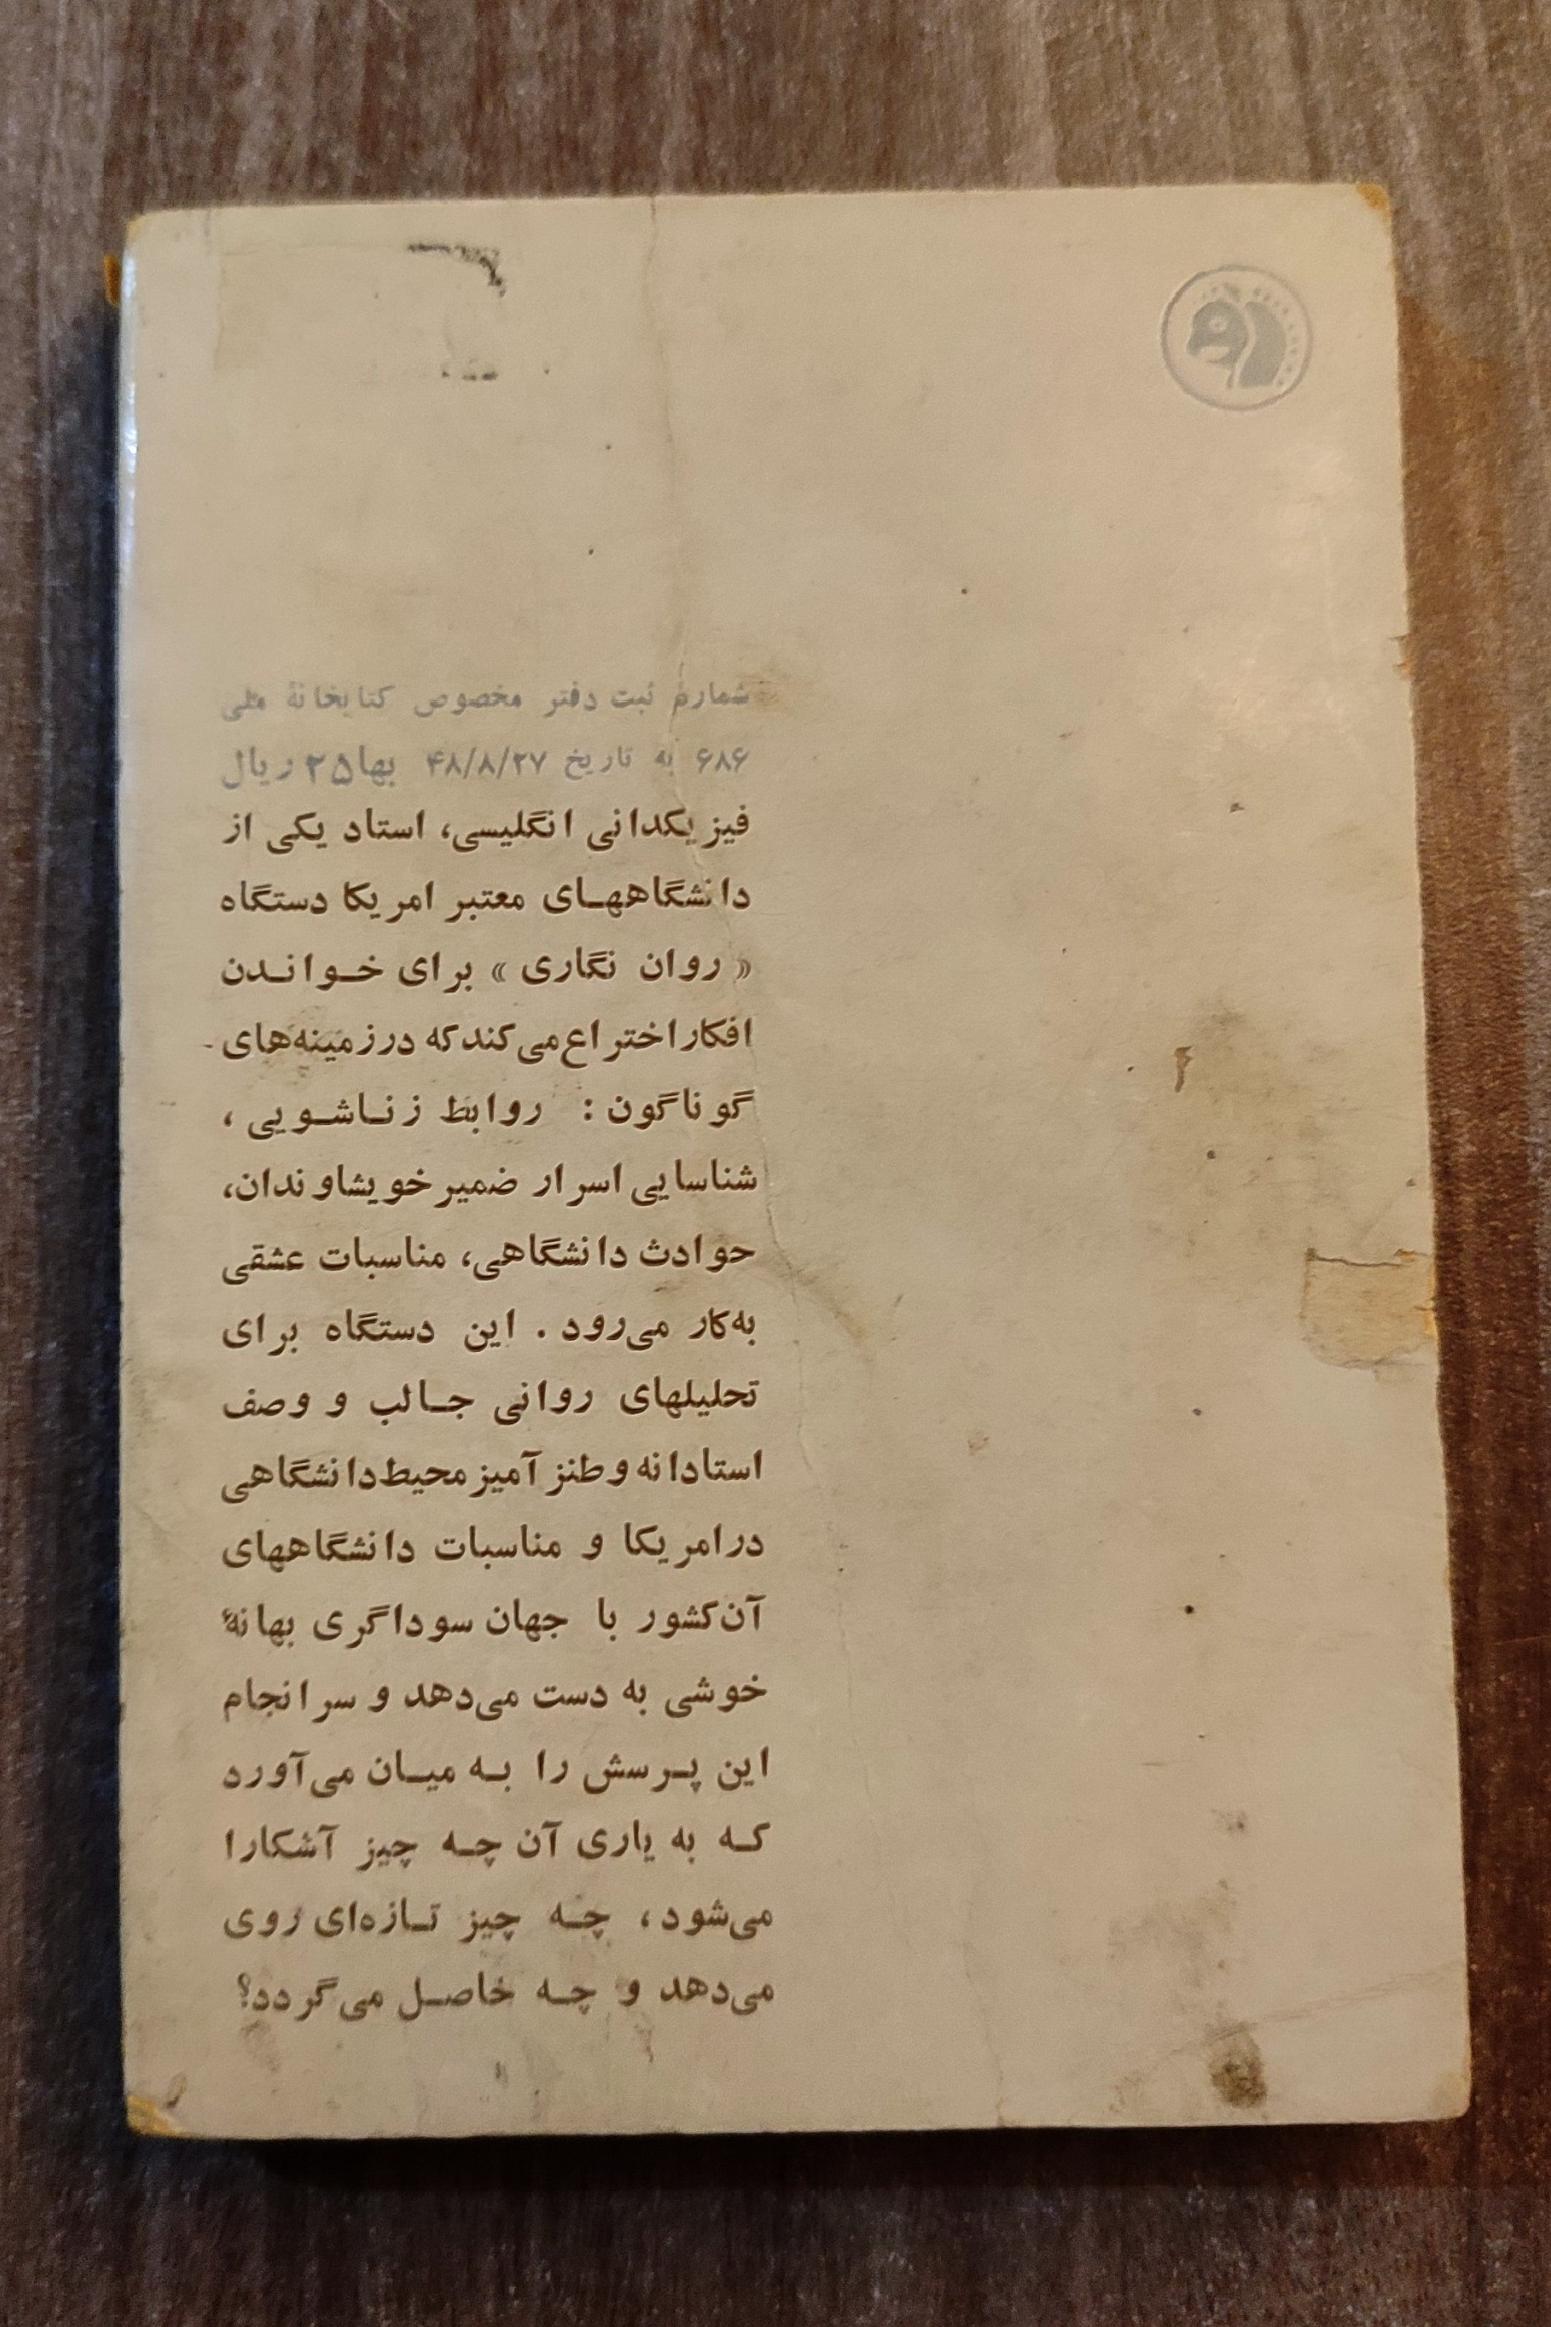 شمارهٔ ثبت دفتر مخصوص کتابخانهٔ ملی
۶۸۶ به تاریخ ۴۸/۸/۲۷ بها ۲۵ ریال
فیزیکدانی انگلیسی، استاد یکی از
دانشگاههای معتبر امریکا دستگاه
« روان نگاری » برای خواندن
افکار اختراع می‌کند که در زمینه‌های
گوناگون : روابط زناشویی ،
شناسایی اسرار ضمیر خویشاوندان،
حوادث دانشگاهی، مناسبات عشقی
به‌کار می‌رود . این دستگاه برای
تحلیلهای روانی جالب و وصف
استادانه و طنز آمیز محیط دانشگاهی
در امریکا و مناسبات دانشگاههای
آن‌کشور با جهان سوداگری بهانهٔ
خوشی به دست می‌دهد و سرانجام
این پرسش را به میان می‌آورد
که به یاری آن چه چیز آشکارا
می‌شود، چه چیز تازه‌ای روی
می‌دهد و چه حاصل می‌گردد؟